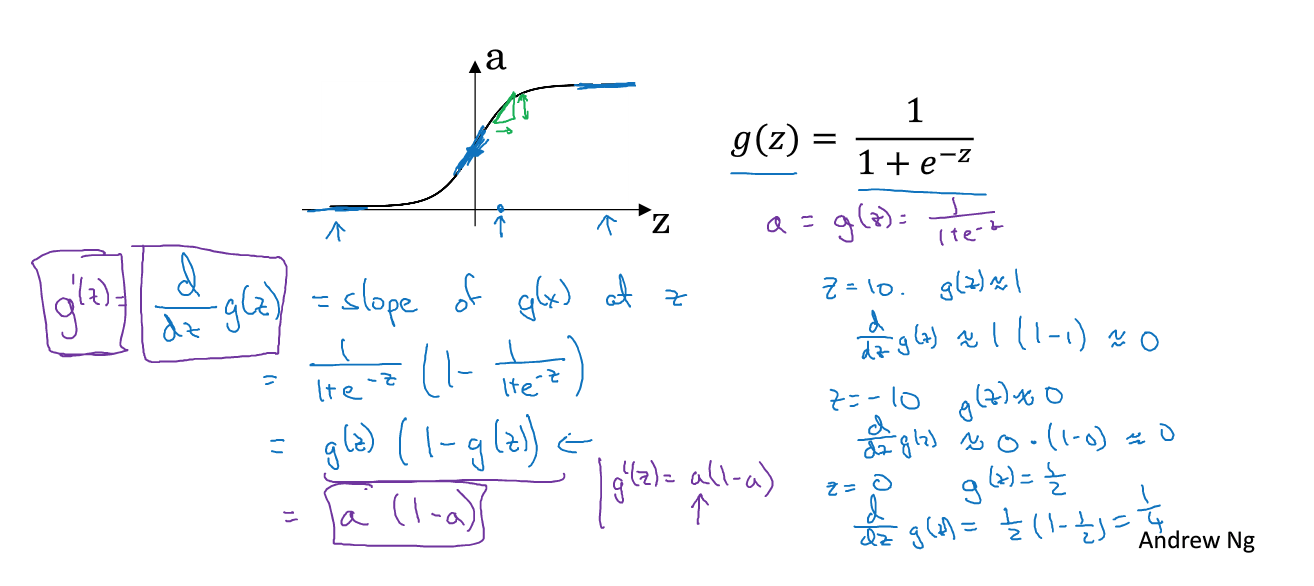 a
z
g(z) = 1 / (1 + e^{-z})
a = g(z) = 1 / (1+e^{-z})
g'(z) = d/dz g(z) = slope of g(x) at z
= 1/(1+e^{-z}) (1 - 1/(1+e^{-z}))
= g(z) (1 - g(z)) ←
= a (1-a)
g'(z) = a(1-a)
z = 10. g(z) ≈ 1
d/dz g(z) ≈ 1 (1-1) ≈ 0
z = -10 g(z) ≈ 0
d/dz g(z) ≈ 0 · (1-0) ≈ 0
z = 0 g(z) = 1/2
d/dz g(z) = 1/2 (1 - 1/2) = 1/4
Andrew Ng